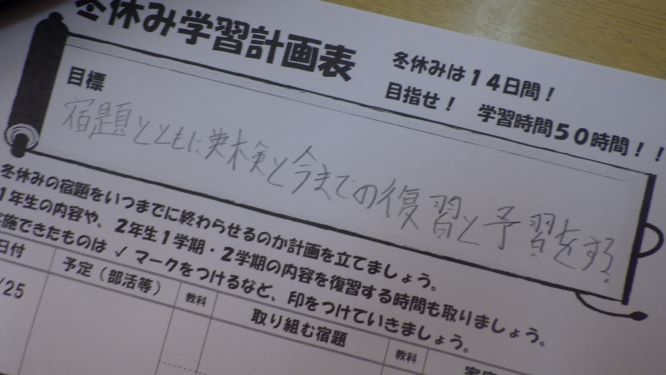 冬休み学習計画表
冬休みは１４日間！
目指せ！ 学習時間５０時間！！
目標
宿題とともに英検と今までの復習と予習をする！
冬休みの宿題をいつまでに終わらせるのか計画を立てましょう。
１年生の内容や、２年生１学期・２学期の内容を復習する時間も取りましょう。
実施できたものは ✓ マークをつけるなど、印をつけていきましょう。
日付 予定（部活等） 教科 取り組む宿題 教科
/25